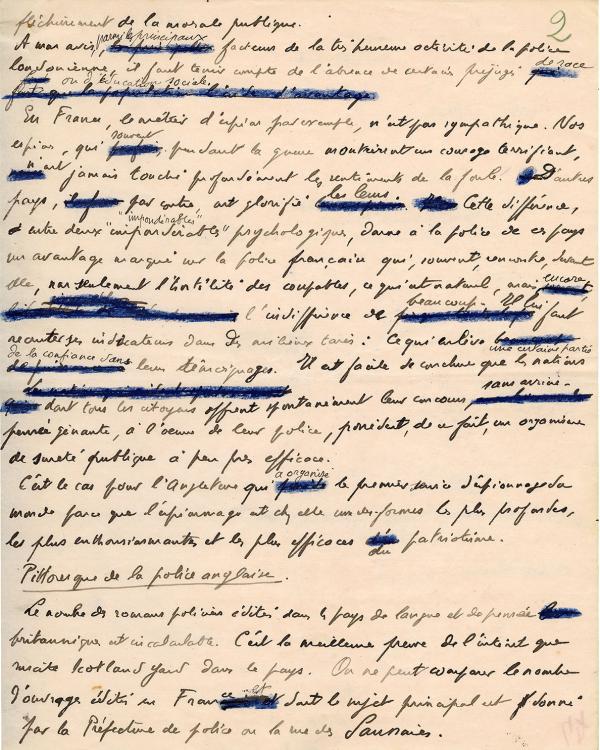 2
fléchissement de la morale publique.
parmi les principaux
A mon avis, facteurs de la très heureuse activité de la police
londonienne, il faut tenir compte de l'absence de certains préjugés de race
ou d'éducation sociale
En France, le métier d'espion par exemple, n'est pas sympathique. Nos
espions, qui souvent pendant la guerre montrèrent un courage terrifiant,
n'ont jamais touché profondément les sentiments de la foule. D'autres
pays, par contre, ont glorifié les leurs. Cette différence,
"impondérables"
et entre deux "impondérables" psychologiques, donne à la police de ces pays
un avantage marqué sur la police française qui, souvent, rencontre, devant
elle, non seulement l'hostilité des coupables, ce qui est naturel, mais encore
l'indifférence de beaucoup. Il lui faut
recruter ses indicateurs dans des milieux tarés : Ce qui enlève une certaine partie
de la confiance dans leurs témoignages. Il est facile de conclure que les nations
dont tous les citoyens offrent spontanément leur concours, sans arrière-
pensée gênante, à l'œuvre de leur police, possèdent, de ce fait, un organisme
de sureté publique à peu près efficace.
C'est le cas pour l'Angleterre qui a organisé le premier service d'espionnage du
monde parce que l'espionnage est chez elle une des formes les plus profondes,
les plus enthousiasmantes et les plus efficaces du patriotisme.
Pittoresque de la police anglaise.
Le nombre des romans policiers édités dans les pays de langue et de pensée
britannique est incalculable. C'est la meilleure preuve de l'intérêt que
suscite Scotland Yard dans le pays. On ne peut comparer le nombre
d'ouvrages édités en France et dont le sujet principal est donné
par la Préfecture de police ou la rue des Saussaies.